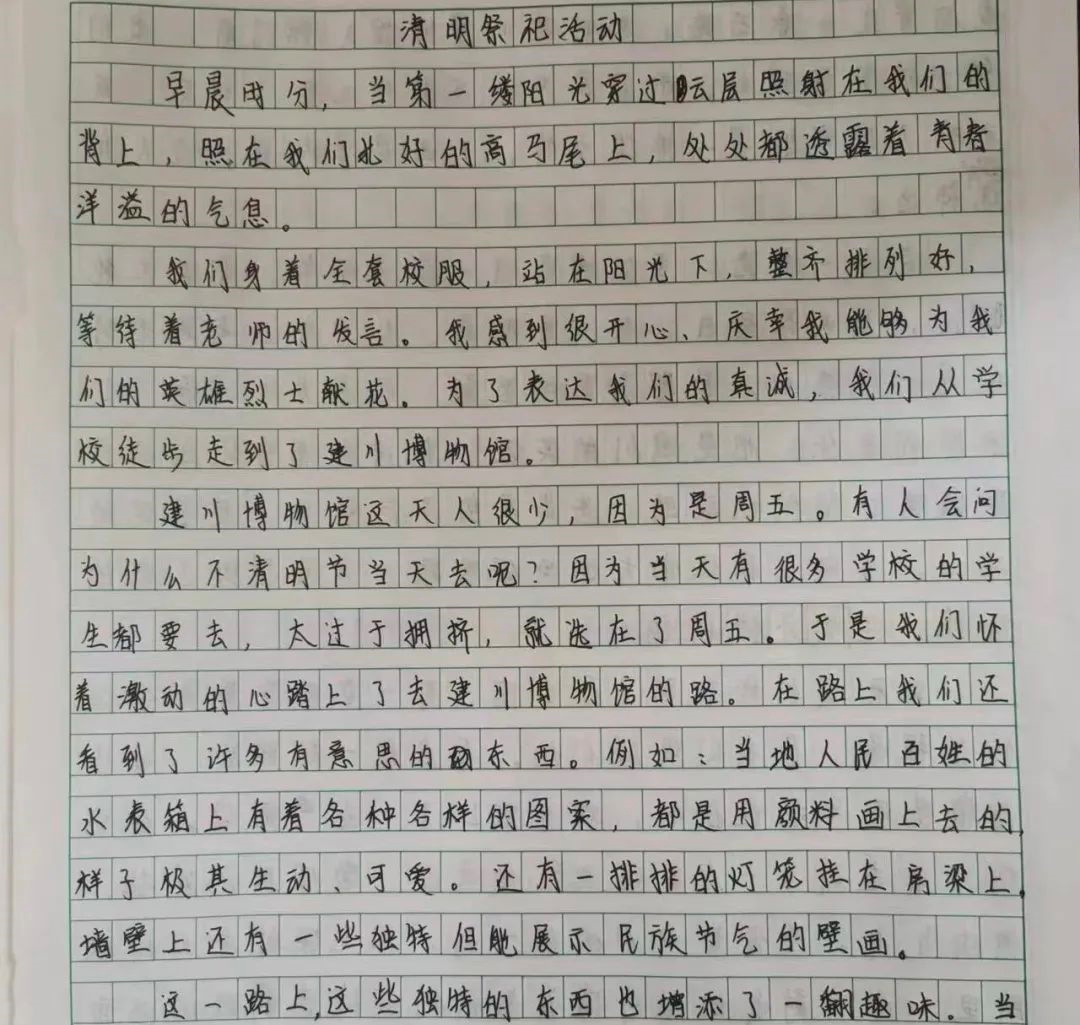 清明祭祀活动
早晨时分，当第一缕阳光穿过云层照射在我们的
背上，照在我们扎好的高马尾上，处处都透露着青春
洋溢的气息。
我们身着全套校服，站在阳光下，整齐排列好，
等待着老师的发言。我感到很开心、庆幸我能够为我
们的英雄烈士献花。为了表达我们的真诚，我们从学
校徒步走到了建川博物馆。
建川博物馆这天人很少，因为是周五。有人会问
为什么不清明节当天去呢？因为当天有很多学校的学
生都要去，太过于拥挤，就选在了周五。于是我们怀
着激动的心踏上了去建川博物馆的路。在路上我们还
看到了许多有意思的东西。例如：当地人民百姓的
水表箱上有着各种各样的图案，都是用颜料画上去的，
样子极其生动、可爱。还有一排排的灯笼挂在房梁上，
墙壁上还有一些独特但能展示民族节气的壁画。
这一路上，这些独特的东西也增添了一翻趣味。当